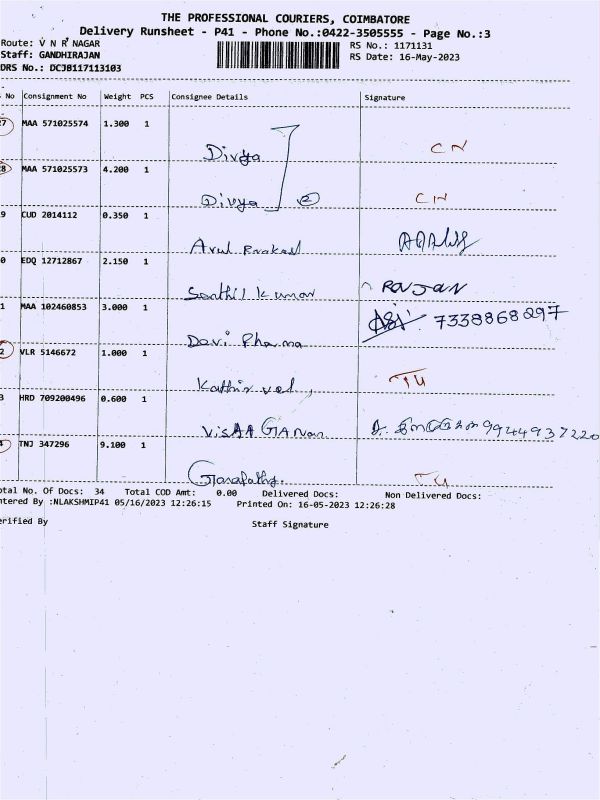 THE PROFESSIONAL COURIERS, COIMBATORE
Delivery Runsheet - P41 - Phone No.:0422-3505555 - Page No.:3
Route: V N R NAGAR
RS No.: 1171131
Staff: GANDHIRAJAN
RS Date: 16-May-2023
DRS No.: DCJB117113103
No Consignment No Weight PCS Consignee Details Signature
27 MAA 571025574 1.300 1
Divya CN
28 MAA 571025573 4.200 1
Divya 2 CN
9 CUD 2014112 0.350 1
Arul Prakash
0 EDQ 12712867 2.150 1
Senthil kumar RAJAN
1 MAA 102460853 3.000 1
Devi Pharma 7338868297
2 VLR 5146672 1.000 1
Kathir vel, TU
3 HRD 709200496 0.600 1
VISAAGANan 9944937220
4 TNJ 347296 9.100 1
Ganapathy. TU
otal No. Of Docs: 34 Total COD Amt: 0.00 Delivered Docs: Non Delivered Docs:
ntered By :NLAKSHMIP41 05/16/2023 12:26:15 Printed On: 16-05-2023 12:26:28
erified By Staff Signature